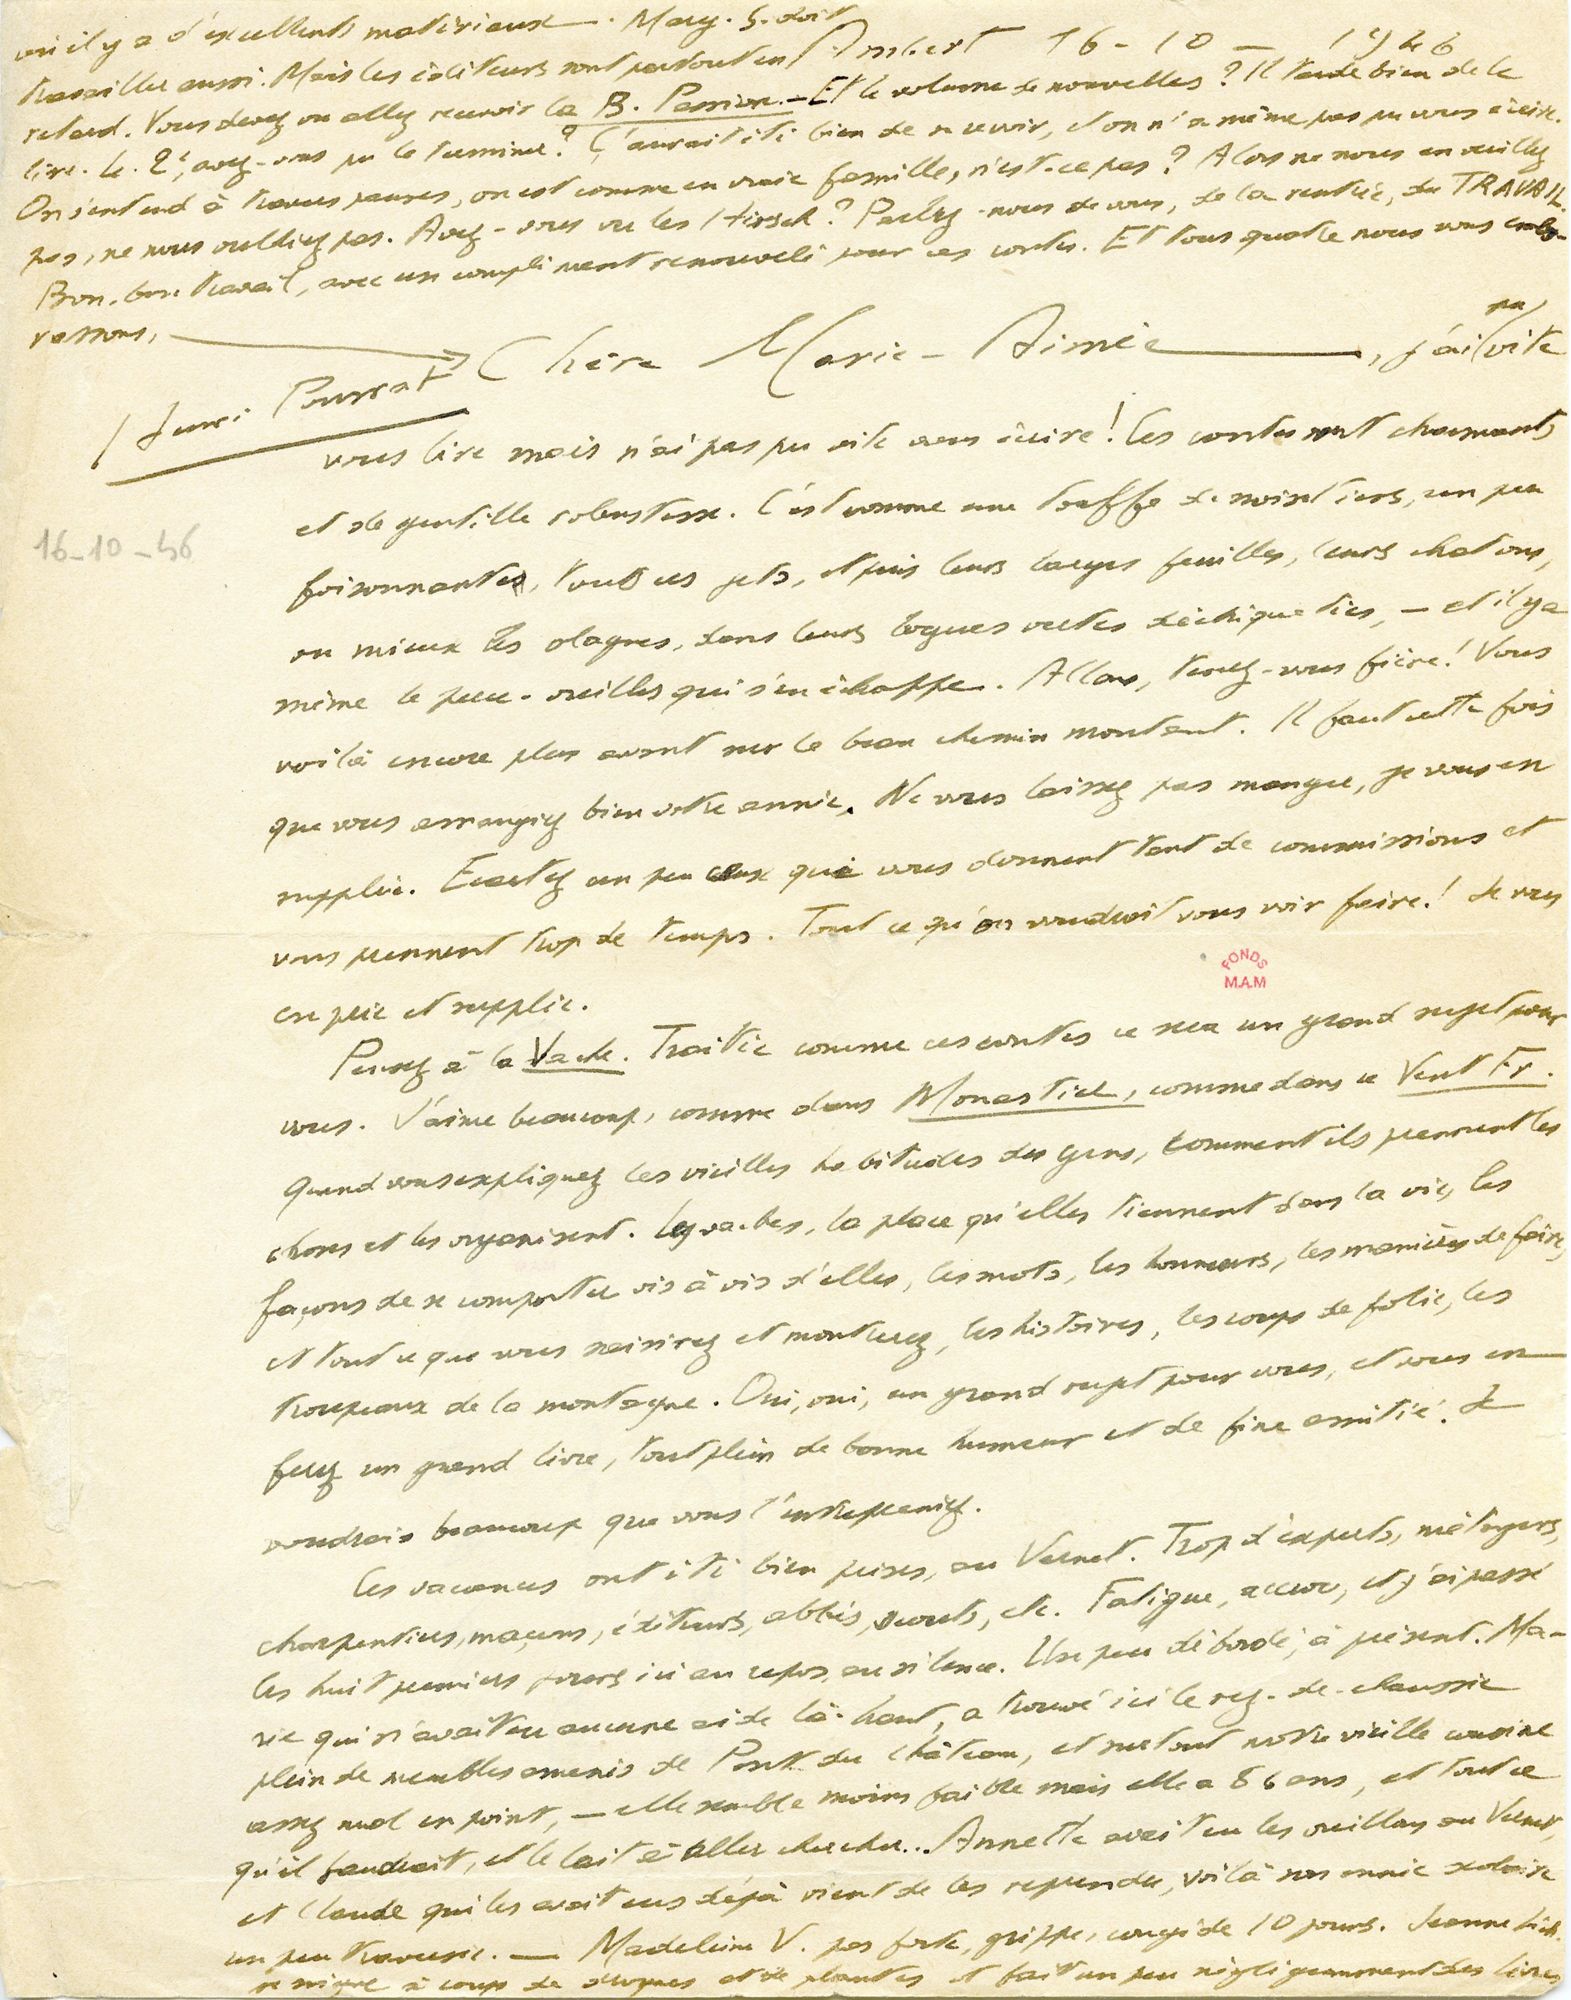 où il y a d'excellents matériaux. Marg. S. doit
travailler aussi. Mais les éditeurs sont partout en
Ambert 16-10-1946
retard. Vous devez ou allez recevoir la B. Passion. - Et le volume de nouvelles ? Il tarde bien de le
lire. Le 2e, avez-vous pu le terminer ? Ç'aurait été bien de se revoir, et on n'a même pas pu vous écrire.
On s'entend à travers pannes, on est comme en vraie famille, n'est-ce pas ? Alors ne nous en veuillez
pas, ne nous oubliez pas. Avez-vous vu les Hirsch ? Parlez-nous de vous, de la rentrée, du TRAVAIL.
Bon, bon travail, avec un compliment renouvelé pour ces contes. Et tous quatre nous vous emb-
rassons,
Henri Pourrat
Chère Marie-Aimée, j'ai pu vite
vous lire mais n'ai pas pu vite vous écrire ! Ces contes sont charmants
et de gentille robustesse. C'est comme une touffe de noisetiers, un peu
16-10-46
foisonnante, tous ces jets, et puis leurs larges feuilles, leurs chatons,
ou mieux les olagnes, dans leurs bogues vertes déchiquetées, - et il y a
même le perce-oreilles qui s'en échappe. Allons, tenez-vous fière ! Vous
voilà encore plus avant sur le beau chemin montant. Il faut cette fois
que vous arrangiez bien votre année. Ne vous laissez pas manger, je vous en
supplie. Ecartez un peu ceux qui vous donnent tant de commissions et
vous prennent trop de temps. Tout ce qu'on voudrait vous voir faire ! Je vous
en prie et supplie.
FONDS
M.A.M
Pensez à la Vache. Traitée comme ces contes ce sera un grand sujet pour
vous. J'aime beaucoup, comme dans Monastier, comme dans ce Vent Fr.
quand vous expliquez les vieilles habitudes des gens, comment ils prennent les
choses et les organisent. Les vaches, la place qu'elles tiennent dans la vie, les
façons de se comporter vis à vis d'elles, les mots, les honneurs, les manières de faire,
et tout ce que vous saisirez et montrerez, les histoires, les coups de folie, les
troupeaux de la montagne. Oui, oui, un grand sujet pour vous, et vous en
ferez un grand livre, tout plein de bonne humeur et de fine amitié. Je
voudrais beaucoup que vous l'entrepreniez.
Les vacances ont été bien prises, au Vernet. Trop d'experts, métayers,
charpentiers, maçons, éditeurs, abbés, scouts, etc. Fatigue, accroc, et j'ai passé
les huit premiers jours ici au repos, au silence. Un peu débordé, à présent. Ma-
rie qui n'avait eu aucune aide là-haut, a trouvé ici le rez-de-chaussée
plein de meubles amenés de Pont du Château, et surtout notre vieille cousine
assez mal en point, - elle semble moins faible mais elle a 86 ans, et tout ce
qu'il faudrait, et le lait à aller chercher... Annette avait eu les oreillons au Vernet,
et Claude qui les avait eus déjà vient de les reprendre, voilà son année scolaire
un peu traversée. - Madeleine V. pas forte, grippe, congé de 10 jours. Jeanne Lich.
se soigne à coups de drogues et de plantes et fait un peu négligemment des livres